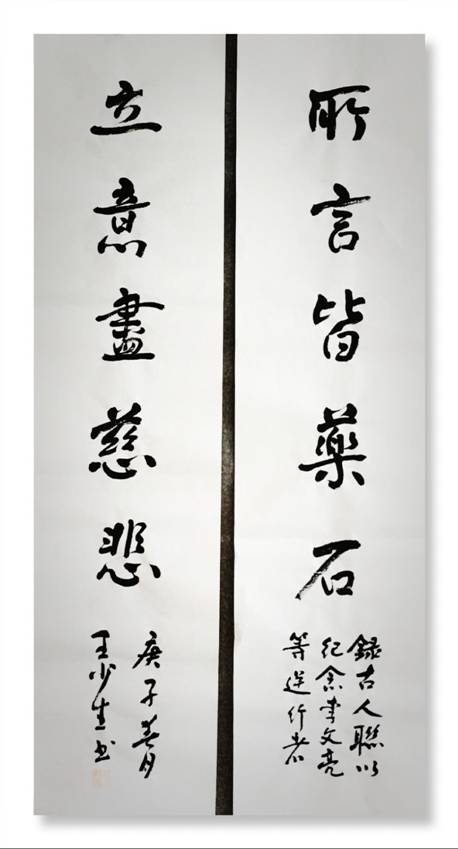 所言皆藥石
錄古人聯以
紀念李文亮
等逆行者
立意盡慈悲
庚子春月
王少生书